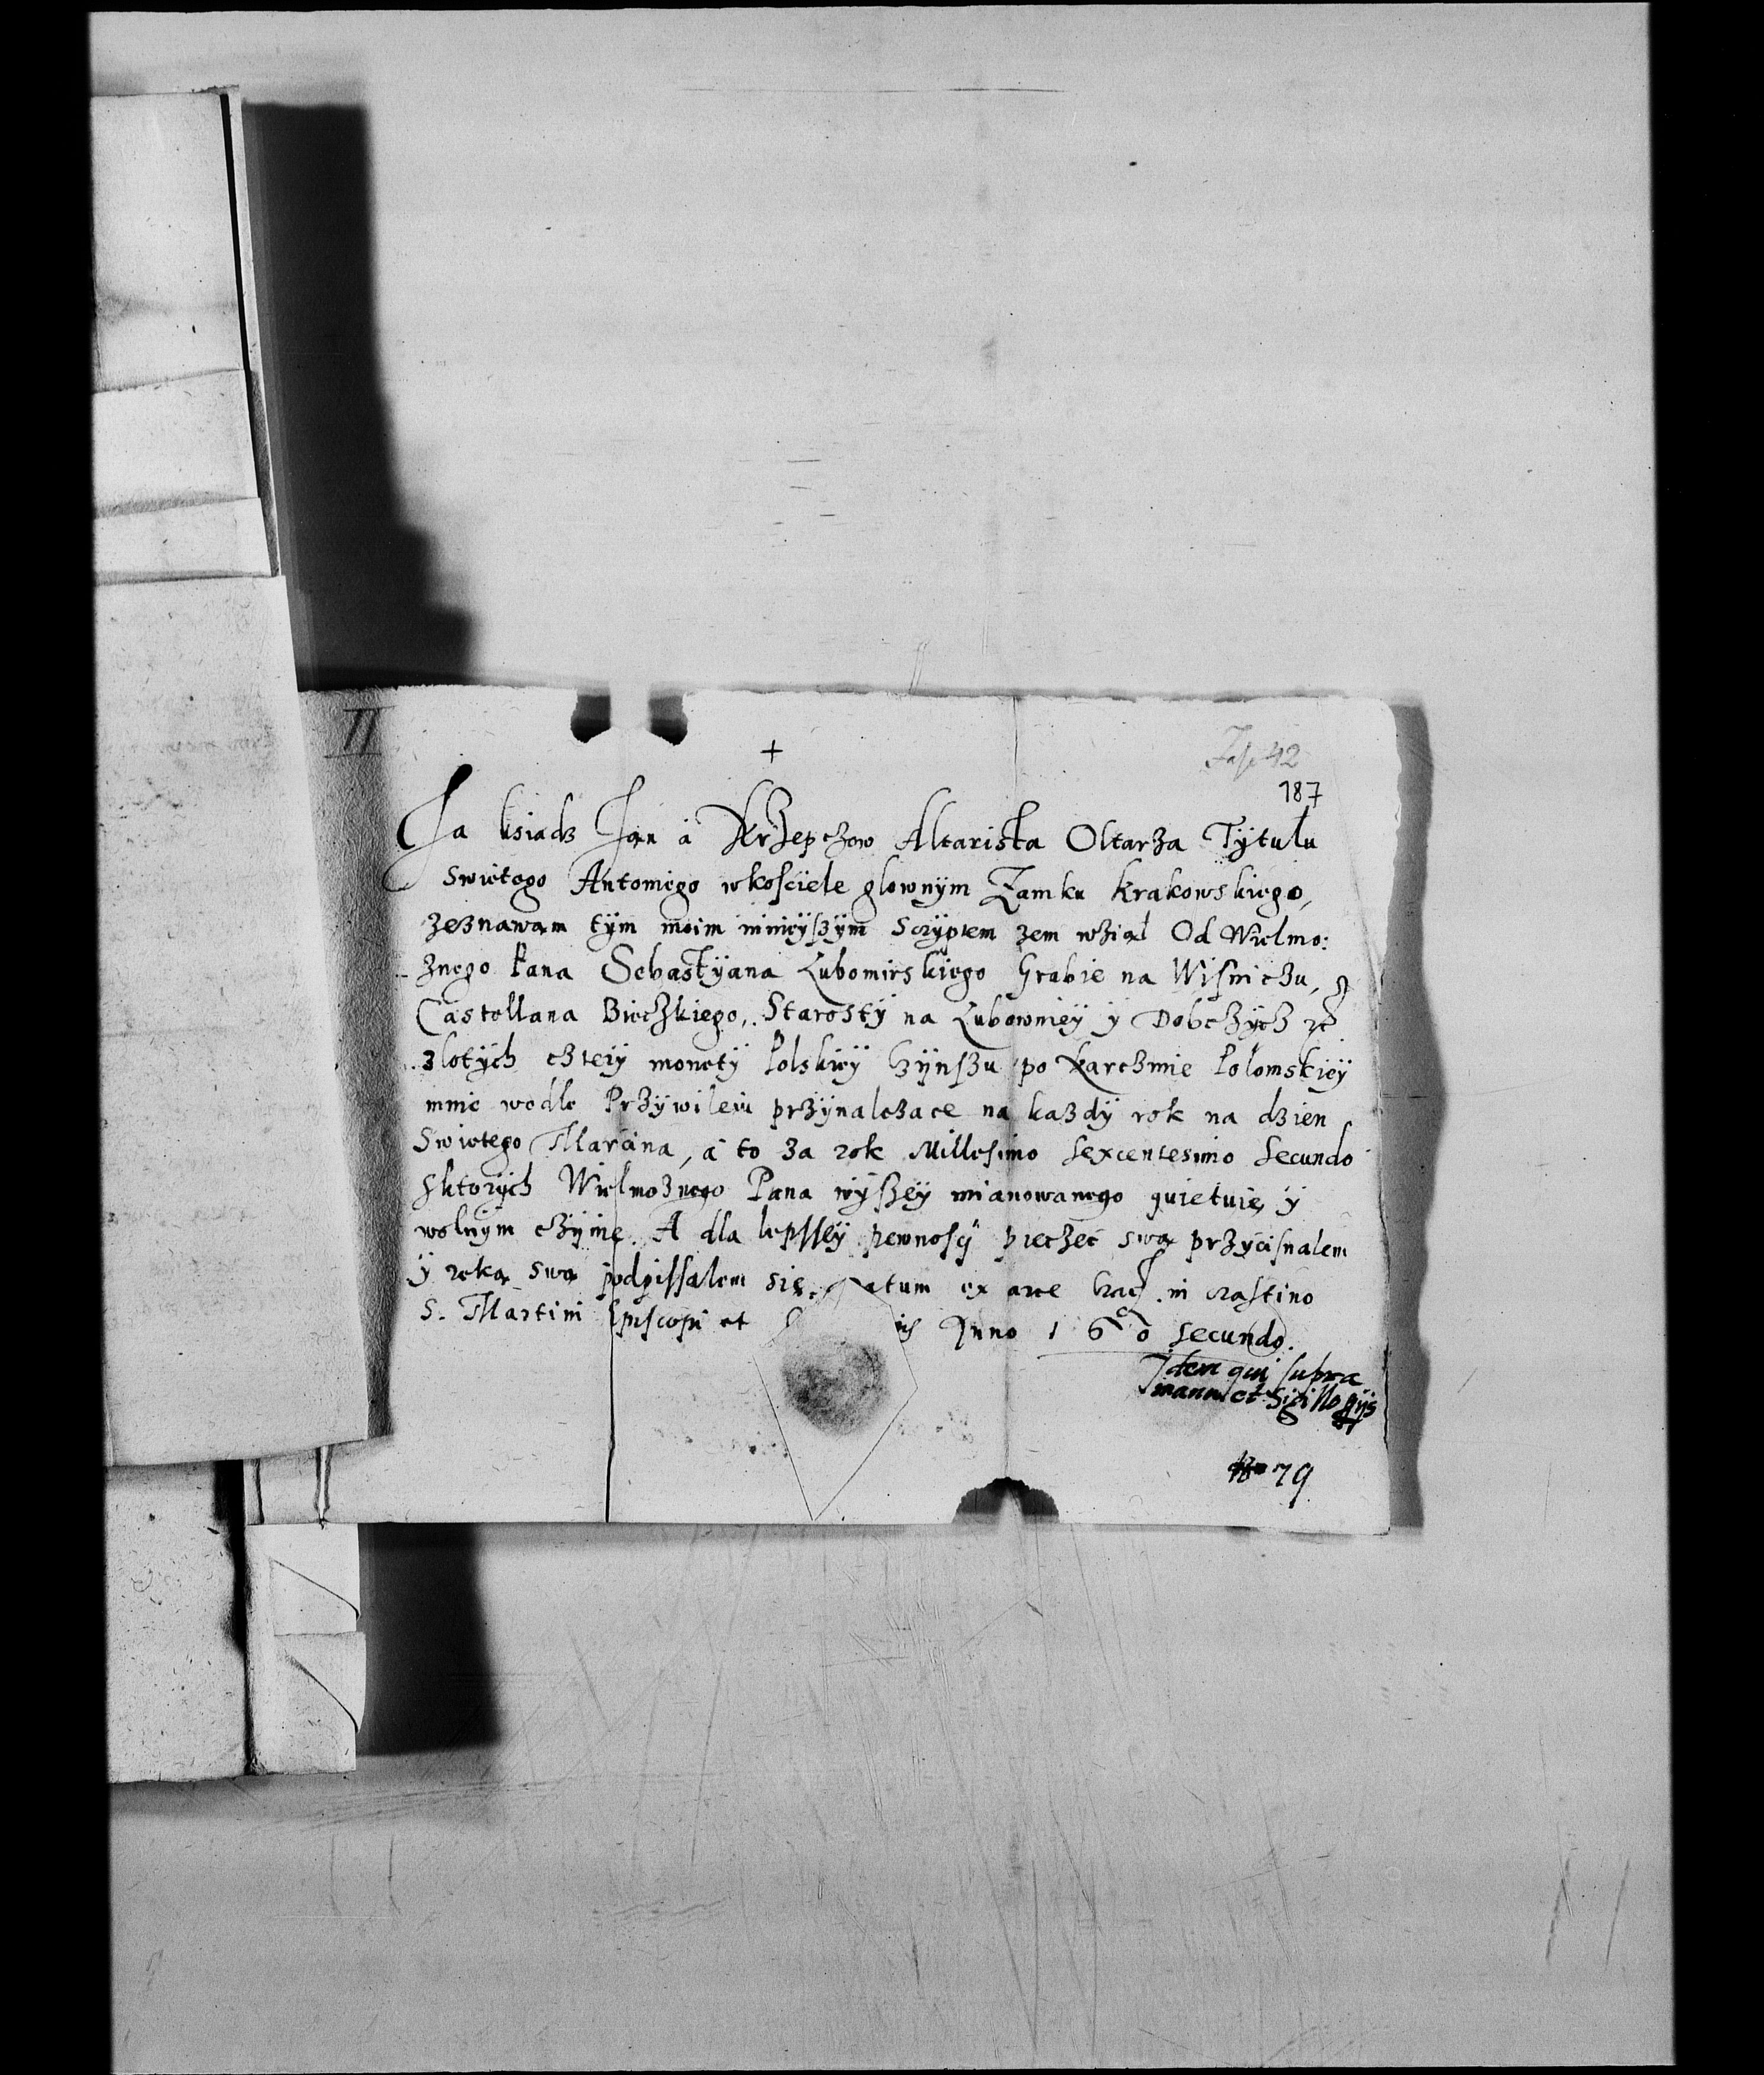 II
+
Fasc 42
187
Ja ksiadz Jan à Krzepczow Altarista Oltarza Tÿtułu
swiętego Antoniego wkosciele glownÿm Zamku Krakowskiego,
zeznawam tÿm moim mnieÿszÿm scrÿptem zem wział Od Wielmo:
znego Pana Sebastÿana Lubomirskiego Grabie na Wisniczu,
Castellana Bieczkiego, Starostÿ na Lubowniey ÿ Dobczÿcz
zlotÿch czterÿ monetÿ Polskieÿ Czÿnszu po karczmie Polomskieÿ
mnie wedle Przÿwileiu przÿnalezace na kazdÿ rok na dzien
Swietego Marcina, à to za rok Millesimo Sexcentesimo Secundo
sktorÿch Wielmoznego Pana wÿszeÿ mianowanego quietuię ÿ
wolnÿm czÿnię. A dla lepsseÿ pewnoscÿ pieczęć swą przÿcisnalem
ÿ ręką swą podpissalem się. Datum ex arce Crac. in crastino
S. Martini Episcopi et is Anno 160 secundo.
Idem qui supra
manu et Sigillo
79